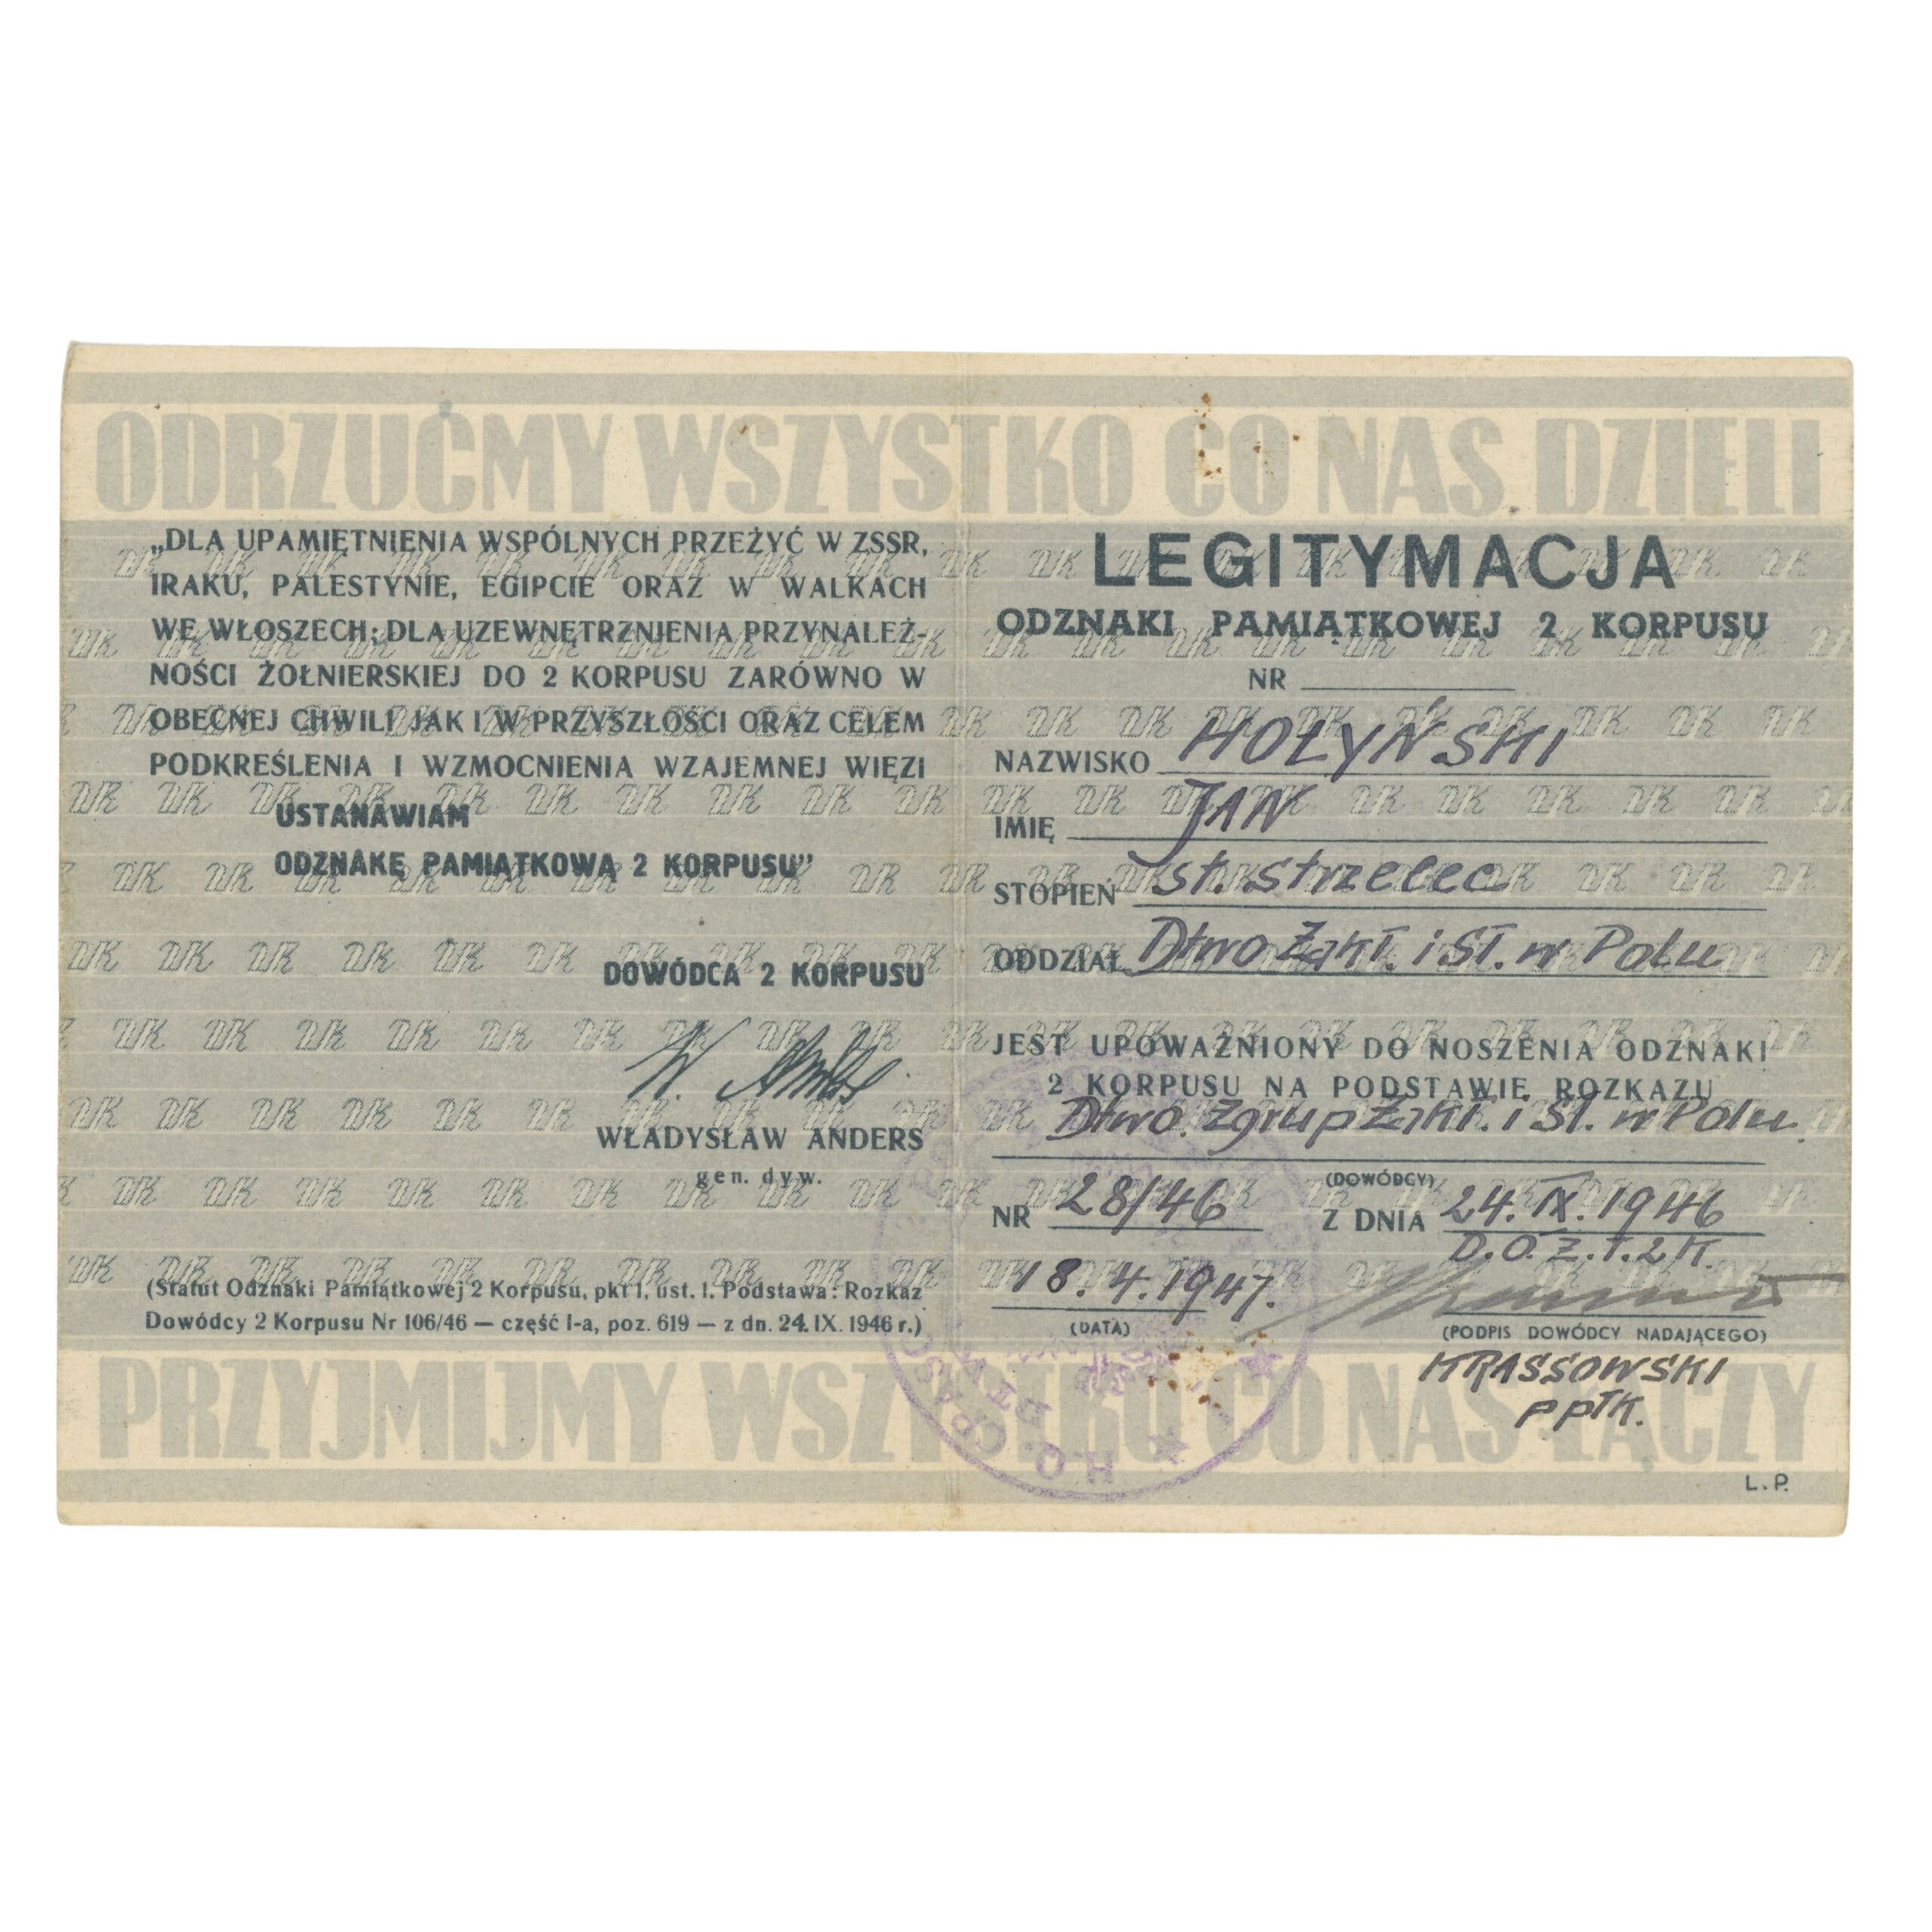 ODRZUĆMY WSZYSTKO CO NAS DZIELI
„DLA UPAMIĘTNIENIA WSPÓLNYCH PRZEŻYĆ W ZSSR,
IRAKU, PALESTYNIE, EGIPCIE ORAZ W WALKACH
WE WŁOSZECH; DLA UZEWNĘTRZNIENIA PRZYNALEŻ-
NOŚCI ŻOŁNIERSKIEJ DO 2 KORPUSU ZARÓWNO W
OBECNEJ CHWILI JAK I W PRZYSZŁOŚCI ORAZ CELEM
PODKREŚLENIA I WZMOCNIENIA WZAJEMNEJ WIĘZI
USTANAWIAM
ODZNAKĘ PAMIĄTKOWĄ 2 KORPUSU”
DOWÓDCA 2 KORPUSU
W. Anders
WŁADYSŁAW ANDERS
gen. dyw.
(Statut Odznaki Pamiątkowej 2 Korpusu, pkt I, ust. 1. Podstawa: Rozkaz
Dowódcy 2 Korpusu Nr 106/46 — część I-a, poz. 619 — z dn. 24. IX. 1946 r.)
LEGITYMACJA
ODZNAKI PAMIĄTKOWEJ 2 KORPUSU
NR
NAZWISKO HOŁYŃSKI
IMIĘ JAN
STOPIEŃ st. strzelec
ODDZIAŁ Dtwo Zakł. i St. w Polu
JEST UPOWAŻNIONY DO NOSZENIA ODZNAKI
2 KORPUSU NA PODSTAWIE ROZKAZU
Dtwo. Zgrup Zakł. i St. w Polu.
(DOWÓDCY)
NR 28/46 Z DNIA 24. IX. 1946
D.O.Z.T.2K.
18.4.1947.
(DATA) (PODPIS DOWÓDCY NADAJĄCEGO)
KRASSOWSKI
ppłk.
H.Q.
PRZYJMIJMY WSZYSTKO CO NAS ŁĄCZY
L.P.